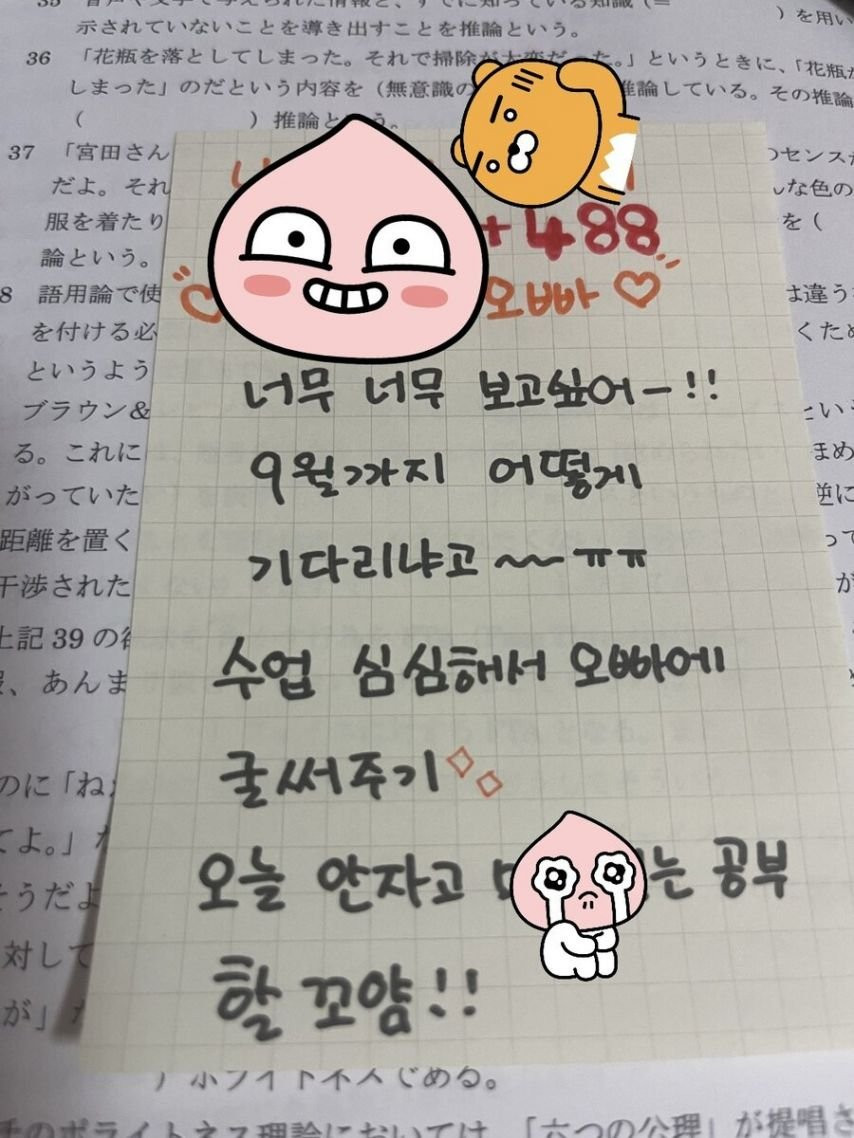 35
示されていないことを導き出すことを推論という。
36 「花瓶を落としてしまった。それで掃除が大変だった。」というときに、「花瓶が
しまった」のだという内容を（無意識の 推論している。その推論
（ ）推論という。
37 「宮田さん のセンスが
だよ。それ んな色の
服を着たり を（
論という。
+488
8 語用論で使 は違う
오빠♡
を付ける必 くため
というよう
너무 너무 보고싶어ー!!
ブラウン& という
る。これに まめ
9월까지 어떻게
がっていた 逆に
距離を置く って
기다리냐고 ~~ㅠㅠ
干渉された が
上記 39 の
수업 심심해서 오빠에
、あんま
글써주기
のに「ね
てよ。」
오늘 안자고 는 공부
そうだよ
対して
할꼬얌!!
が」
）ポライトネスじめる。
のポライトネス理論においては、「六つの公理」が提唱さ